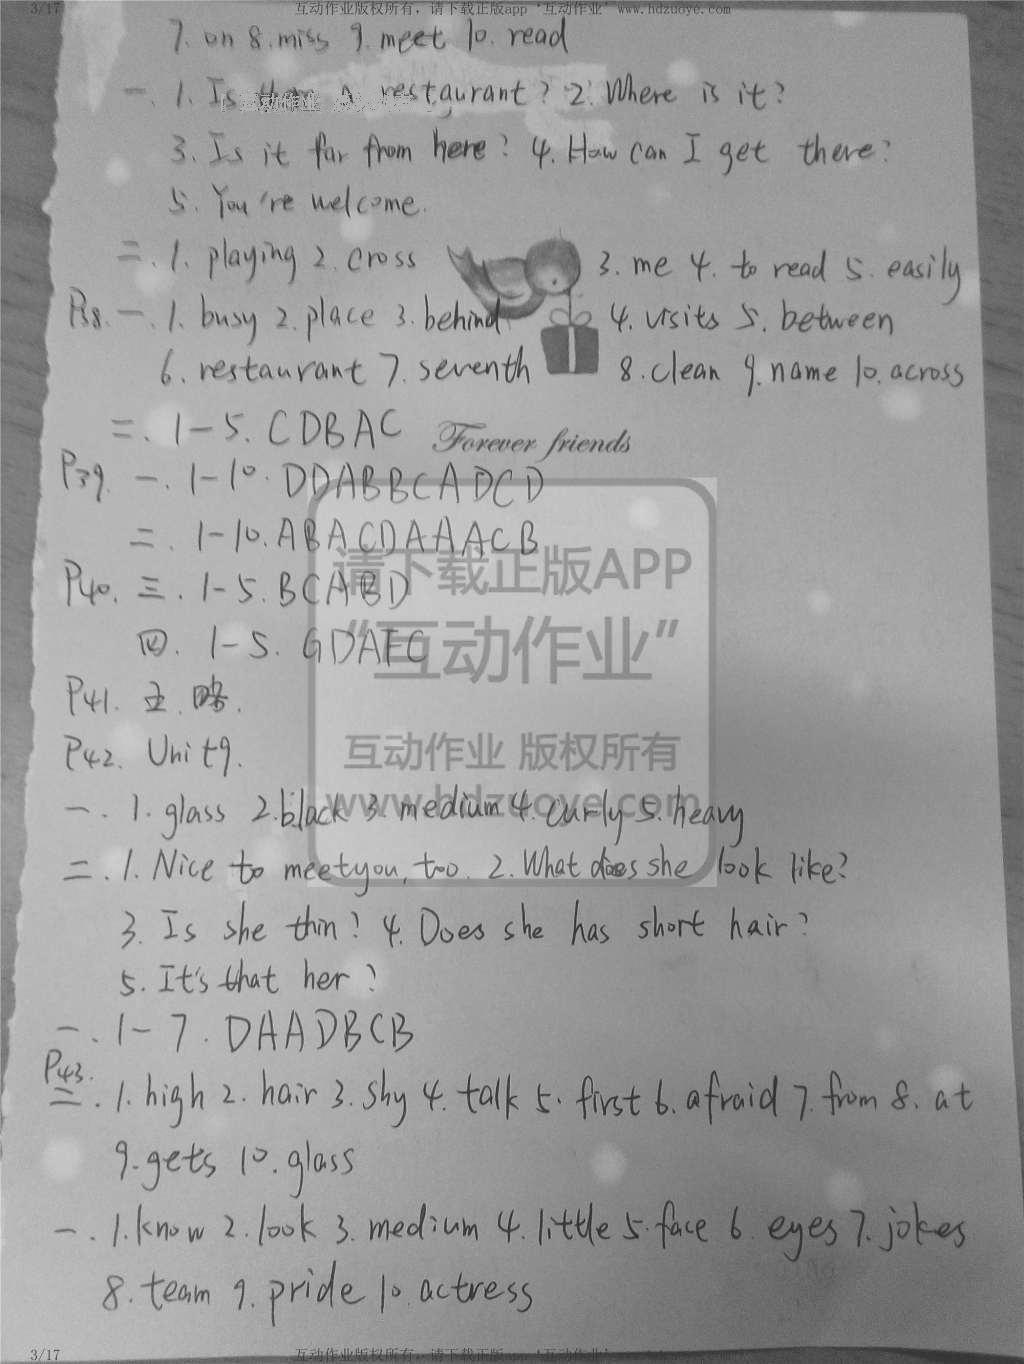 3/17 互动作业版权所有，请下载正版app‘互动作业’www.hdzuoye.com
7. on 8. miss 9. meet 10. read
一. 1. Is there a restaurant? 2. Where is it?
3. Is it far from here? 4. How can I get there?
5. You're welcome.
二. 1. playing 2. cross 3. me 4. to read 5. easily
P38. 一. 1. busy 2. place 3. behind 4. visits 5. between
6. restaurant 7. seventh 8. clean 9. name 10. across
二. 1-5. CDBAC
Forever friends
P39. 一. 1-10. DDABBCADCD
二. 1-10. ABACDAAACB
请下载正版APP
P40. 三. 1-5. BCABD
四. 1-5. GDAFC
“互动作业”
P41. 五. 略.
P42. Unit 9.
互动作业 版权所有
www.hdzuoye.com
一. 1. glass 2. black 3. medium 4. curly 5. heavy
二. 1. Nice to meet you, too. 2. What does she look like?
3. Is she thin? 4. Does she has short hair?
5. It's that her?
一. 1-7. DAADBCB
P43.
二. 1. high 2. hair 3. shy 4. talk 5. first 6. afraid 7. from 8. at
9. gets 10. glass
一. 1. know 2. look 3. medium 4. little 5. face 6. eyes 7. jokes
8. team 9. pride 10. actress
3/17 互动作业版权所有，请下载正版app‘互动作业’